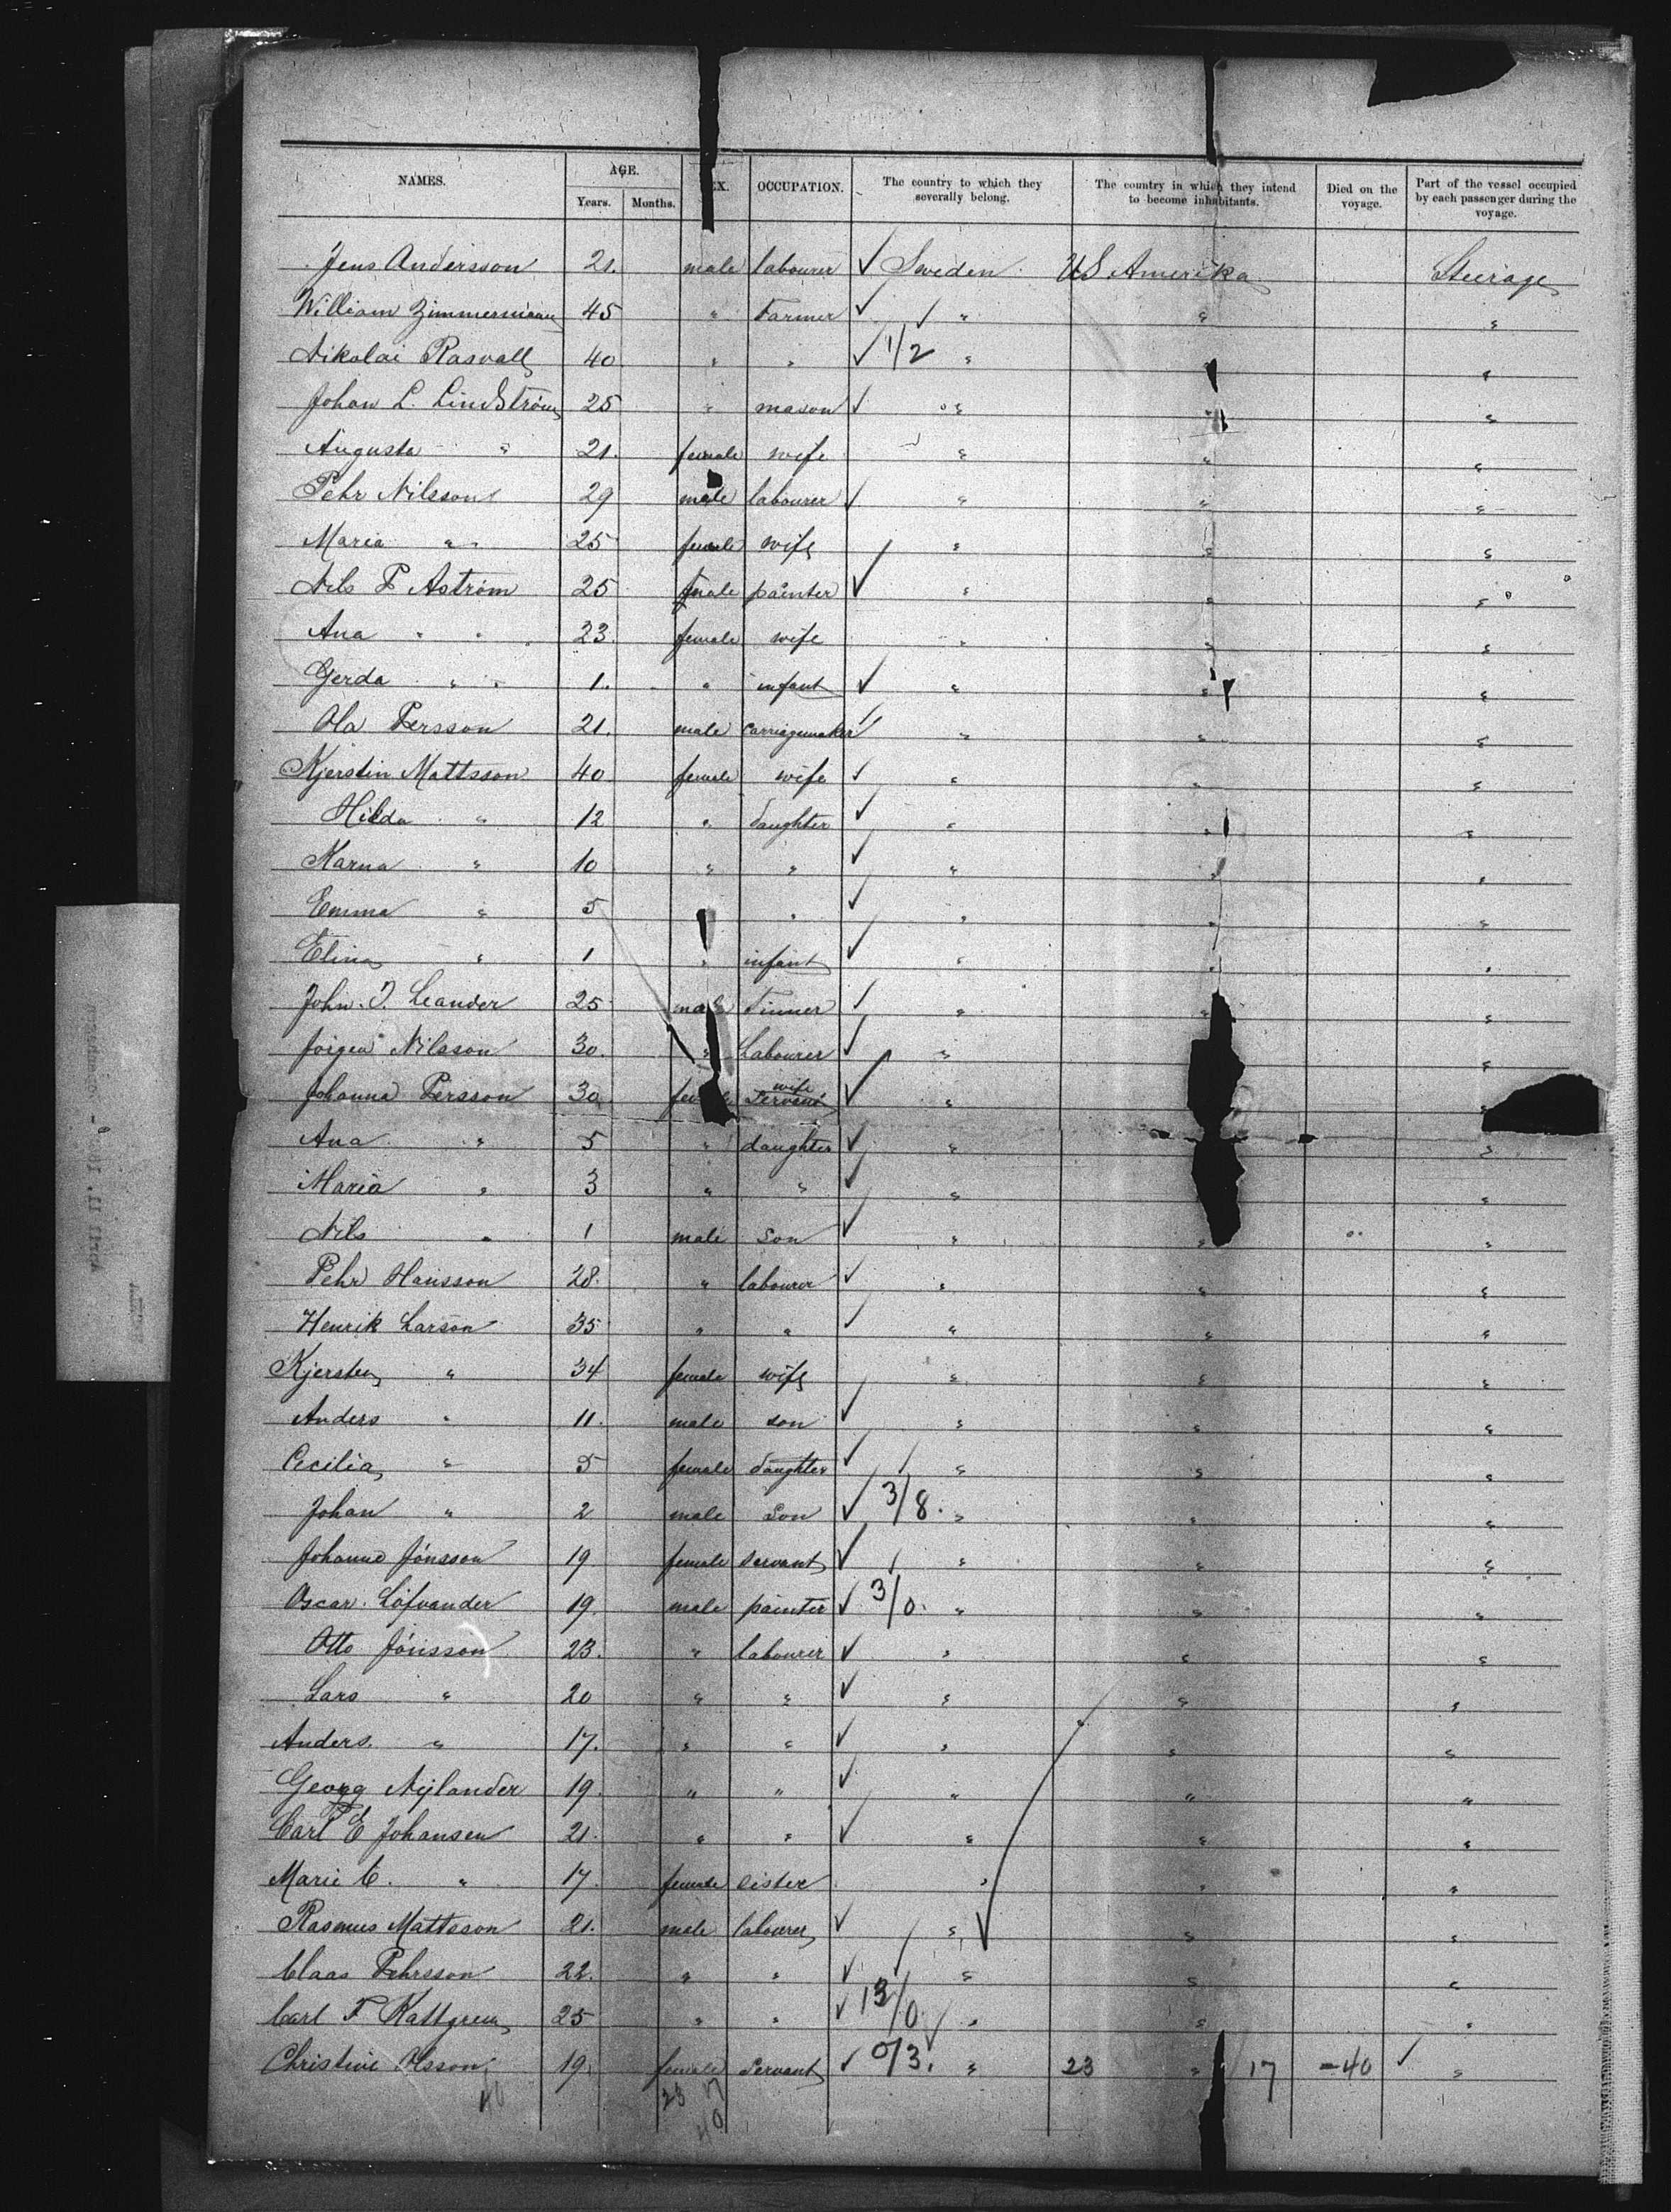 NAMES. AGE. Years. Months. EX. OCCUPATION. The country to which they severally belong. The country in which they intend to become inhabitants. Died on the voyage. Part of the vessel occupied by each passenger during the voyage.
Jens Andersson 21. male labourer ✓ Sweden US Amerika Steerage
William Zimmermann 45 " Farmer ✓ " " "
Nikolai Rasvall 40 " " ✓ 1/2 " " "
Johan L. Lindström 25 " mason ✓ " " "
Augusta " 21. female wife " " "
Pehr Nilsson 29 male labourer ✓ " " "
Maria " 25 female wife " " "
Nils P Aström 25 male painter ✓ " " "
Ana " " 23. female wife " " "
Gerda " " 1. " infant ✓ " " "
Ola Persson 21. male carriagemaker ✓ " " "
Kjerstin Mattsson 40 female wife ✓ " " "
Hilda " 12 " daughter ✓ " " "
Karna " 10 " " ✓ " " "
Emma " 5 " ✓ " " "
Elina " 1 " infant ✓ " " "
John. T. Leander 25 male Tinner ✓ " " "
Jörgen Nilsson 30. " Labourer ✓ " "
Johanna Persson 30 female wife Servant ✓ " "
Ana " 5 " daughter ✓ " "
Maria " 3 " " ✓ " "
Nils " 1 male Son ✓ " " "
Pehr Hansson 28. " labourer ✓ " " "
Henrik Larson 35 " " ✓ " " "
Kjersten " 34 female wife " " "
Anders " 11. male son ✓ " " "
Cecilia " 5 female daughter ✓ " " "
Johan " 2 male Son ✓ 3/8. " " "
Johanne Jönsson 19 female servant ✓ " " "
Oscar Löfvander 19. male painter ✓ 3/0. " " "
Otto Jönsson 23. " labourer ✓ " " "
Lars " 20 " " ✓ " " "
Anders. " 17. " " ✓ " " "
Georg Nylander 19. " " ✓ " " "
Carl E Johansen 21. " " ✓ " " "
Marie C. " 17. female sister " " "
Rasmus Mattsson 21. male labourer ✓ " ✓ " "
Claas Pehrsson 22. " " ✓ " " "
Carl F Kattgren 25 " " ✓ 13/0. " " "
Christine Olsson 19. female Servant ✓ 0/3. " 23 " 17 =40 ✓ "
40 23 17
40